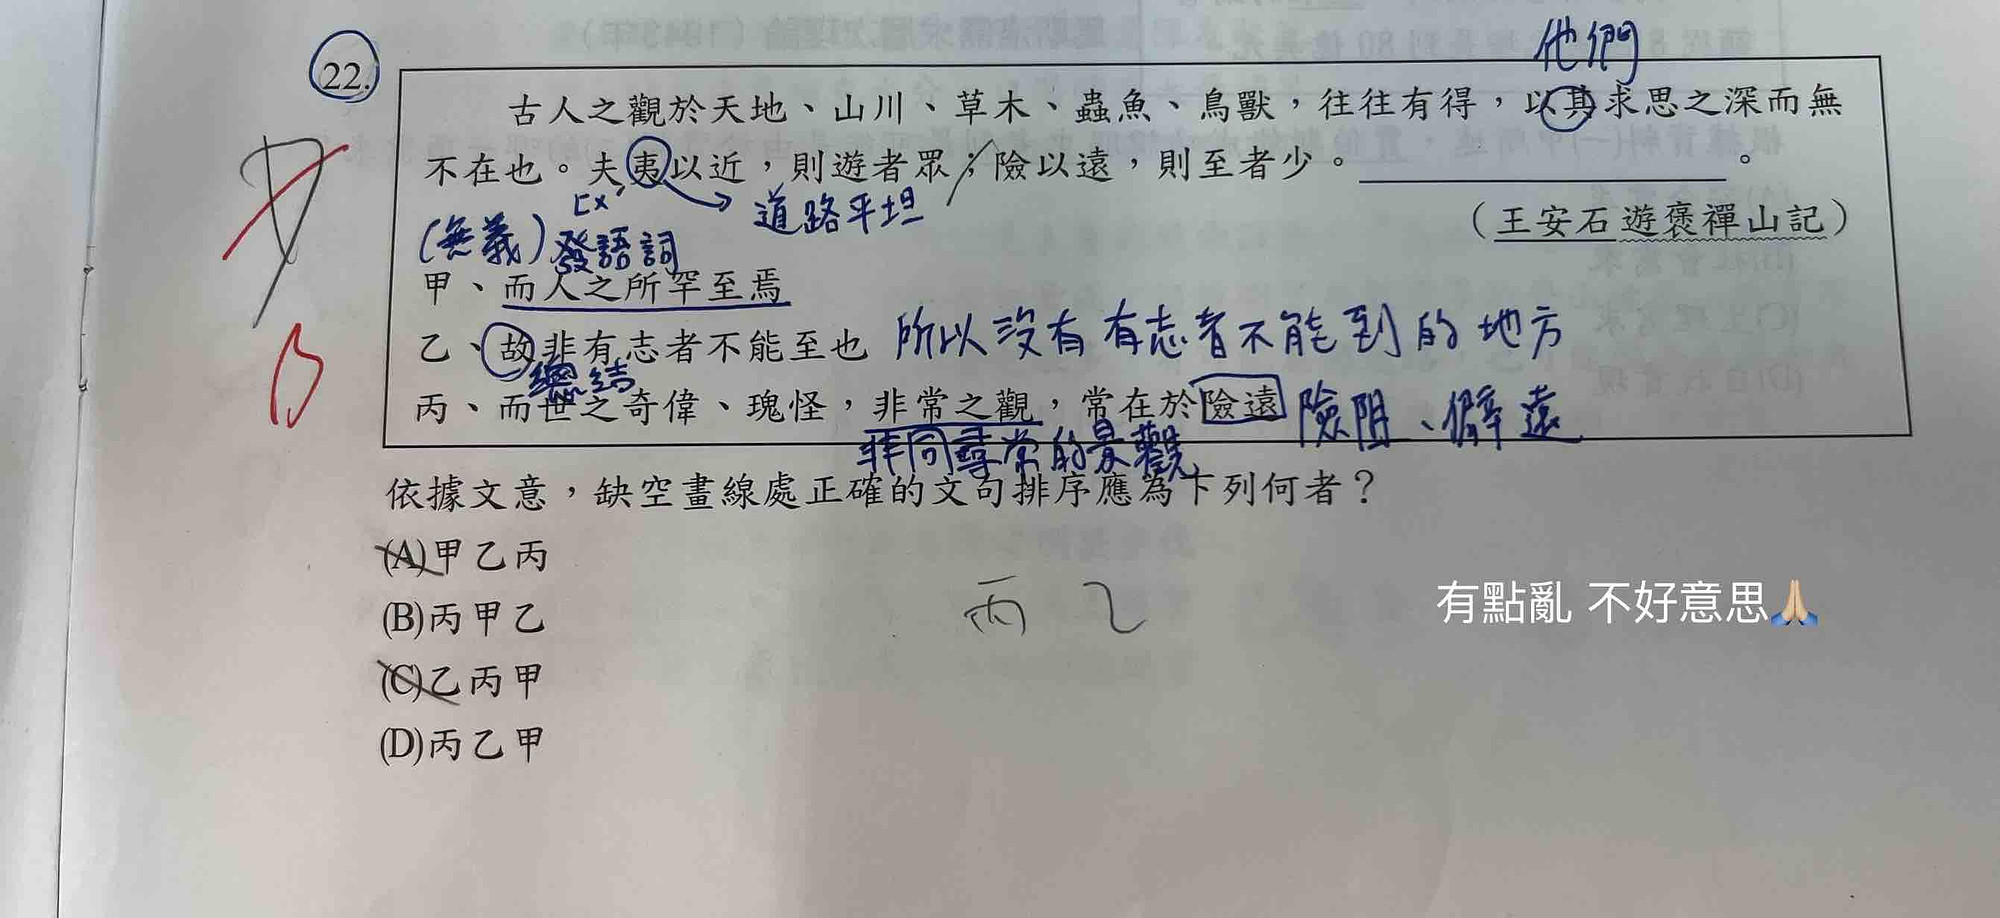 他們
22.
古人之觀於天地、山川、草木、蟲魚、鳥獸，往往有得，以其求思之深而無
不在也。夫夷以近，則遊者眾；險以遠，則至者少。＿＿＿＿＿＿。
ㄈㄨˊ
道路平坦
（王安石遊褒禪山記）
(無義)發語詞
甲、而人之所罕至焉
乙、故非有志者不能至也 所以沒有有志者不能到的地方
總結
丙、而世之奇偉、瑰怪，非常之觀，常在於險遠 險阻、僻遠
非同尋常的景觀
依據文意，缺空畫線處正確的文句排序應為下列何者？
(A)甲乙丙
(B)丙甲乙
(C)乙丙甲
(D)丙乙甲
丙 乙
B
有點亂 不好意思🙏🏻